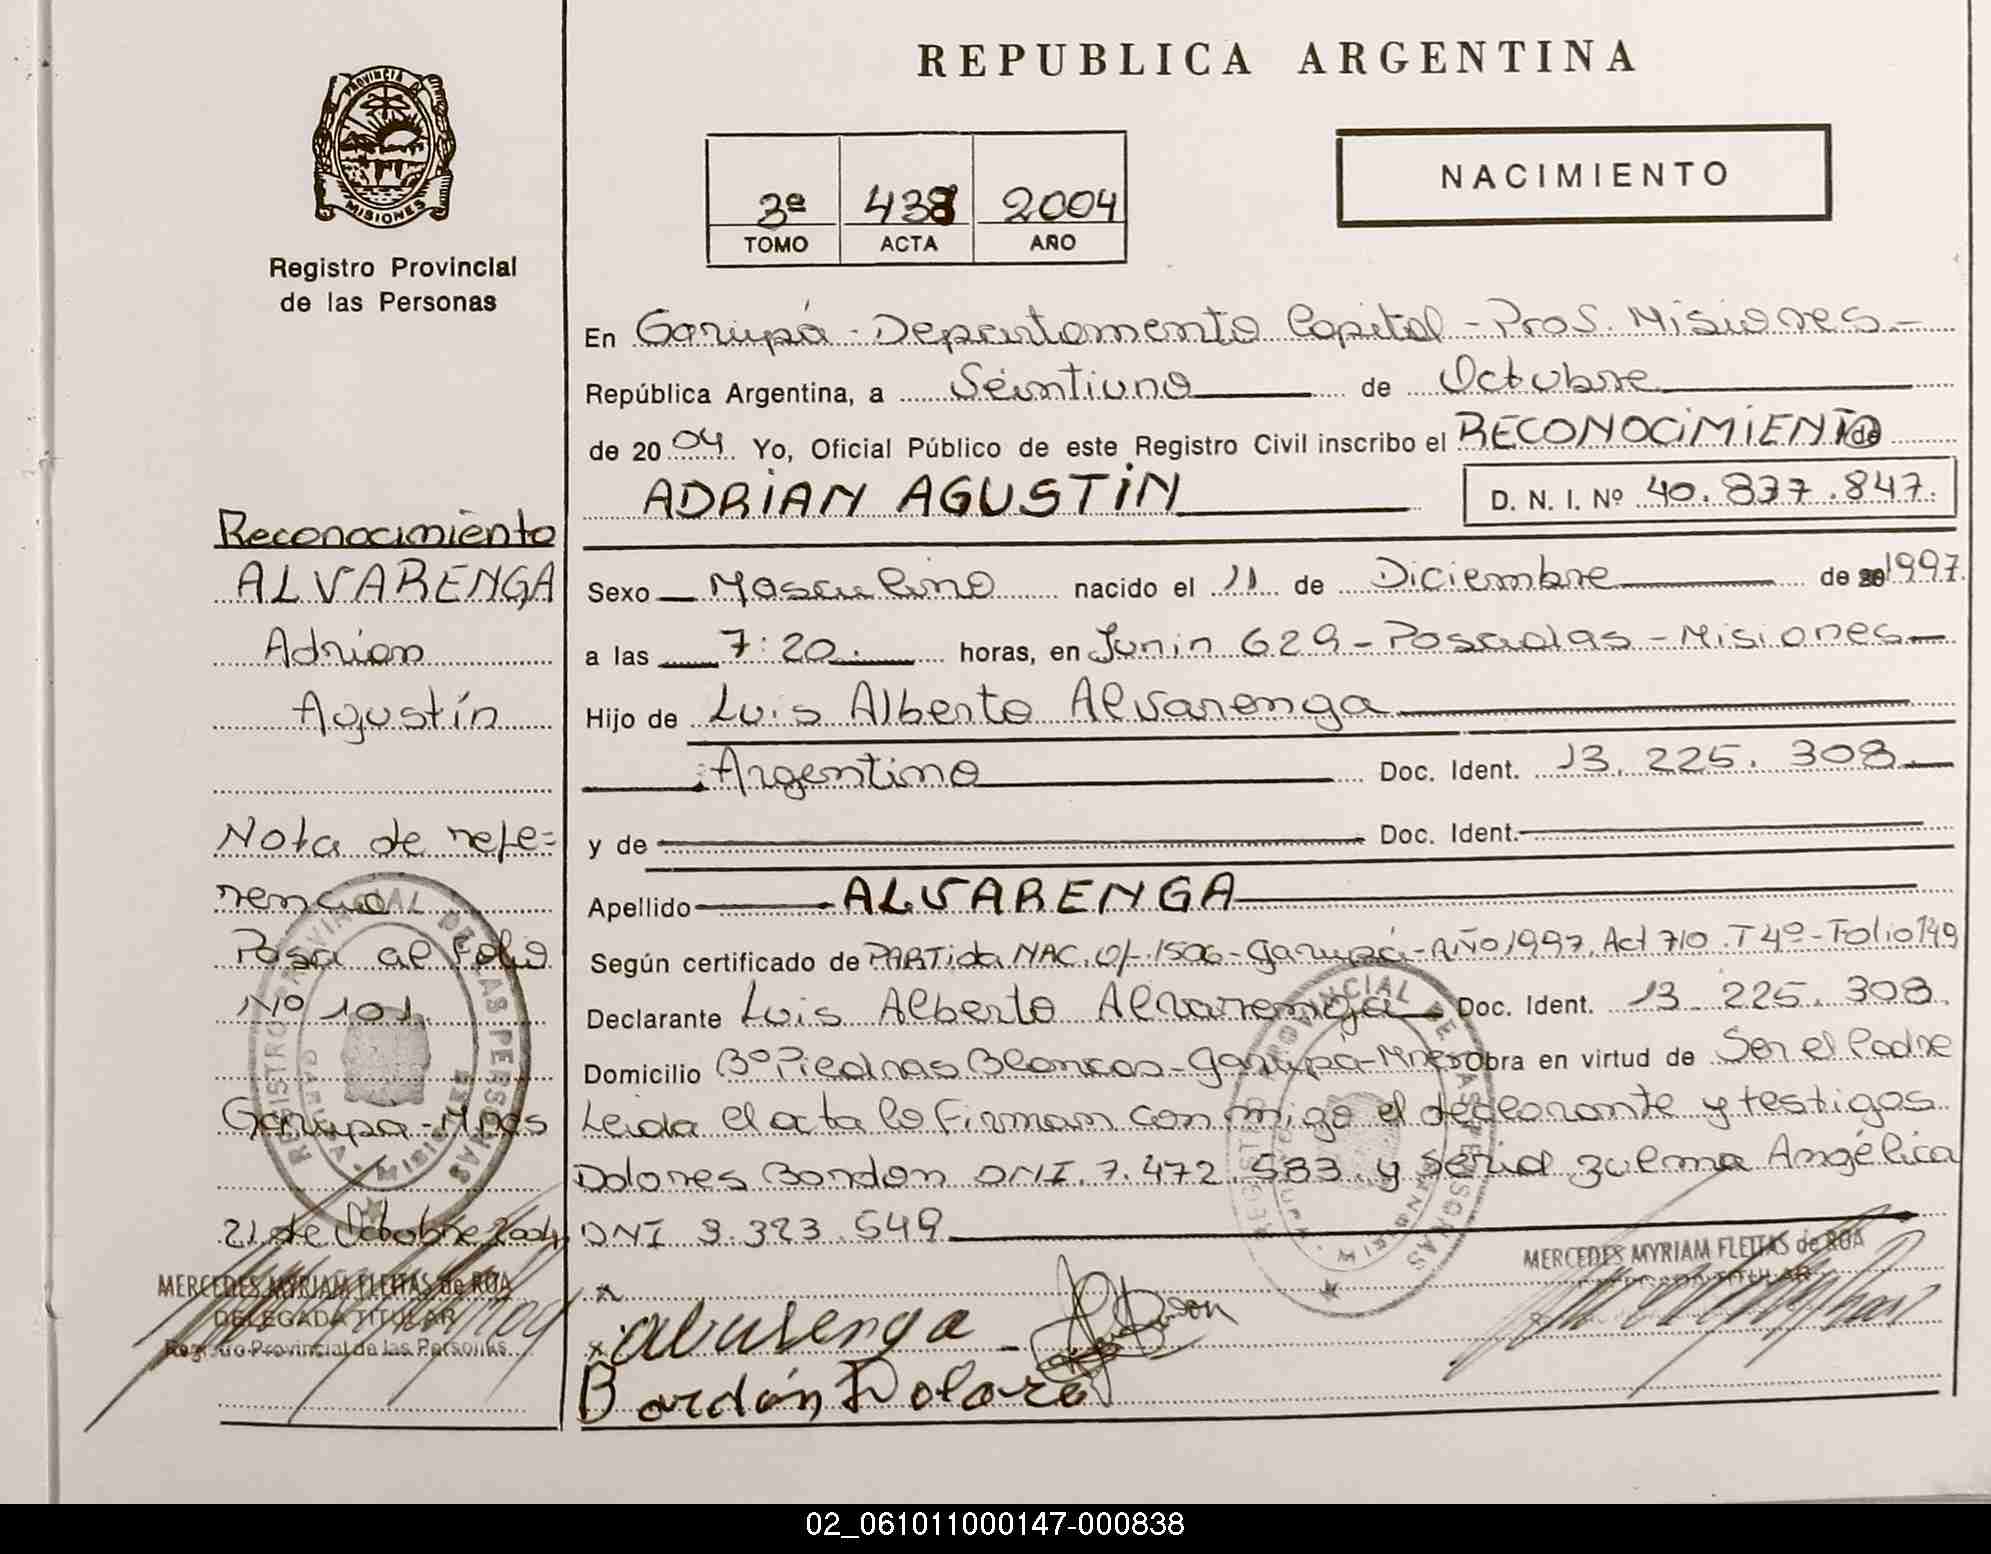 REPUBLICA ARGENTINA
PROVINCIA DE
MISIONES
Registro Provincial
de las Personas
NACIMIENTO
3º 438 2004
TOMO ACTA AÑO
En Garupá - Departamento Capital - Prov. Misiones.-
República Argentina, a Veintiuno de Octubre
de 2004 Yo, Oficial Público de este Registro Civil inscribo el RECONOCIMIENTO de
ADRIAN AGUSTIN D. N. I. Nº 40.837.847.
Sexo Masculino nacido el 11 de Diciembre de 1997.
a las 7:20. horas, en Junin 629 - Posadas - Misiones
Hijo de Luis Alberto Alvarenga
Argentino Doc. Ident. 13.225.308.
y de Doc. Ident.
Apellido ALVARENGA
Según certificado de PARTida NAC. Of. 1506 - Garupá - AÑO 1997. Act 710. T4º - Folio 149
Declarante Luis Alberto Alvarenga Doc. Ident. 13.225.308.
Domicilio Bº Piedras Blancas - Garupá - Mnes Obra en virtud de Ser el Padre
Leida el acta la firman conmigo el declarante y testigos
Dolores Bordon DNI. 7.472.583. y Zulma Angélica
DNI 9.323.549
alvarenga
Bordón Dolores
MERCEDES MYRIAM FLEITAS de ROA
DELEGADA TITULAR
Reconocimiento
ALVARENGA
Adrian
Agustín
Nota de refe=
rencia
Pasa al Folio
Nº 101
Garupá - Mnes
21 de Octubre 2004
MERCEDES MYRIAM FLEITAS de ROA
DELEGADA TITULAR
Registro Provincial de las Personas
REGISTRO PROVINCIAL DE LAS PERSONAS
REGISTRO PROVINCIAL DE LAS PERSONAS
02_061011000147-000838